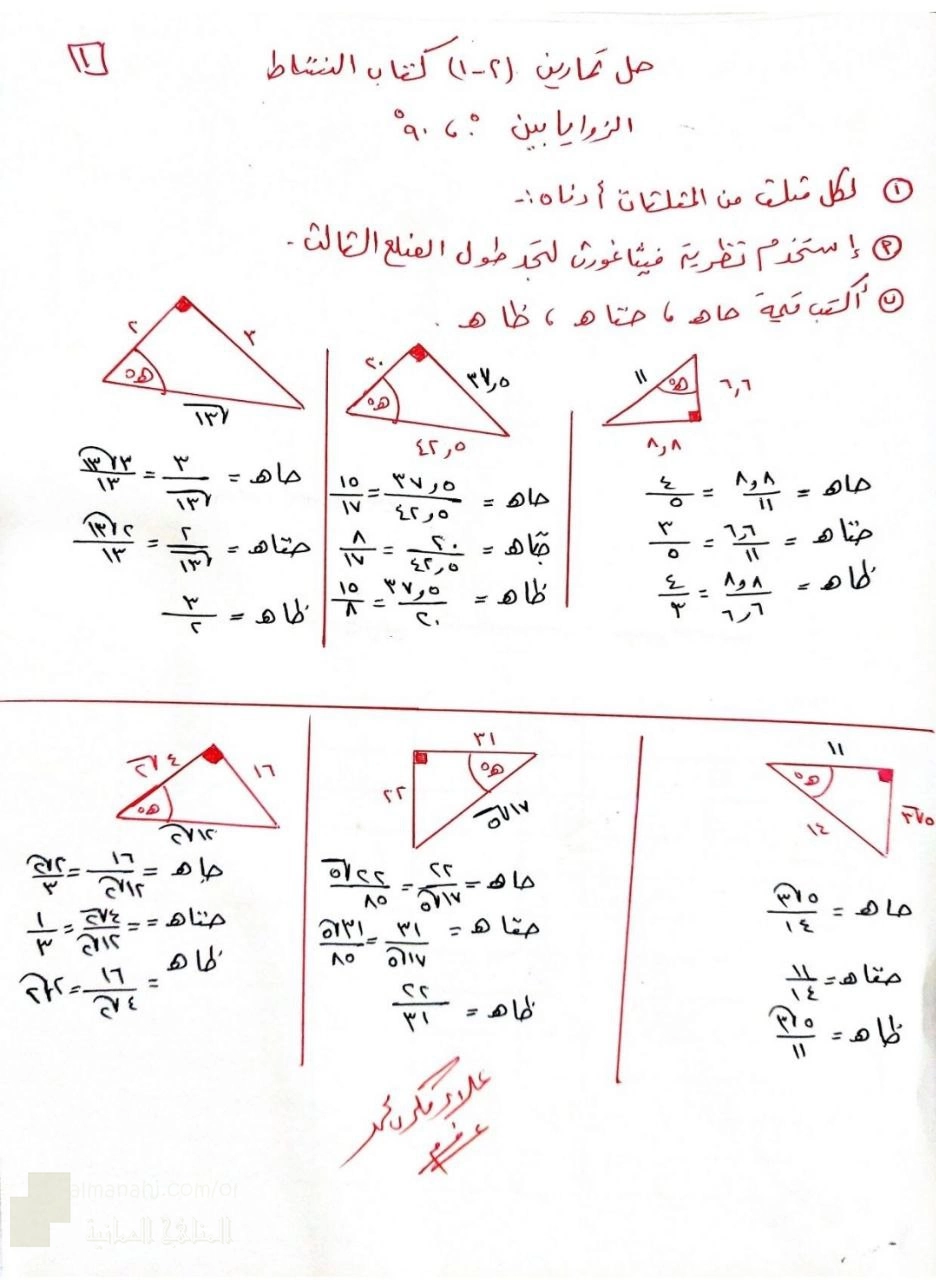 ١
حل تمارين (٢-١) كتاب النشاط
الزوايا بين ٠° ، ٩٠°
① لكل مثلث من المثلثات أدناه:-
Ⓟ إستخدم نظرية فيثاغورث لتجد طول الضلع الثالث.
ب أكتب قيمة جاهـ ، جتاهـ ، ظاهـ .
١١ هـ° ٦,٦
٨,٨
جاهـ = ٨,٨/١١ = ٤/٥
جتاهـ = ٦,٦/١١ = ٣/٥
ظاهـ = ٨,٨/٦,٦ = ٤/٣
٢٠ هـ° ٣٧,٥
٤٢,٥
جاهـ = ٣٧,٥/٤٢,٥ = ١٥/١٧
جتاهـ = ٢٠/٤٢,٥ = ٨/١٧
ظاهـ = ٣٧,٥/٢٠ = ١٥/٨
٢ هـ° ٣
١٣√
جاهـ = ٣/١٣√ = ١٣√٣/١٣
جتاهـ = ٢/١٣√ = ١٣√٢/١٣
ظاهـ = ٣/٢
١١
هـ° ٣√٥
١٤
جاهـ = ٣√٥/١٤
جتاهـ = ١١/١٤
ظاهـ = ٣√٥/١١
٣١
هـ° ٢٢
٥√١٧
جاهـ = ٢٢/٥√١٧ = ٥√٢٢/٨٥
جتاهـ = ٣١/٥√١٧ = ٥√٣١/٨٥
ظاهـ = ٢٢/٣١
٢√٤ ١٦
هـ°
٢√١٢
جاهـ = ١٦/٢√١٢ = ٢√٢/٣
جتاهـ = ٢√٤/٢√١٢ = ١/٣
ظاهـ = ١٦/٢√٤ = ٢√٢
almanahj.com/om
المناهج العمانية